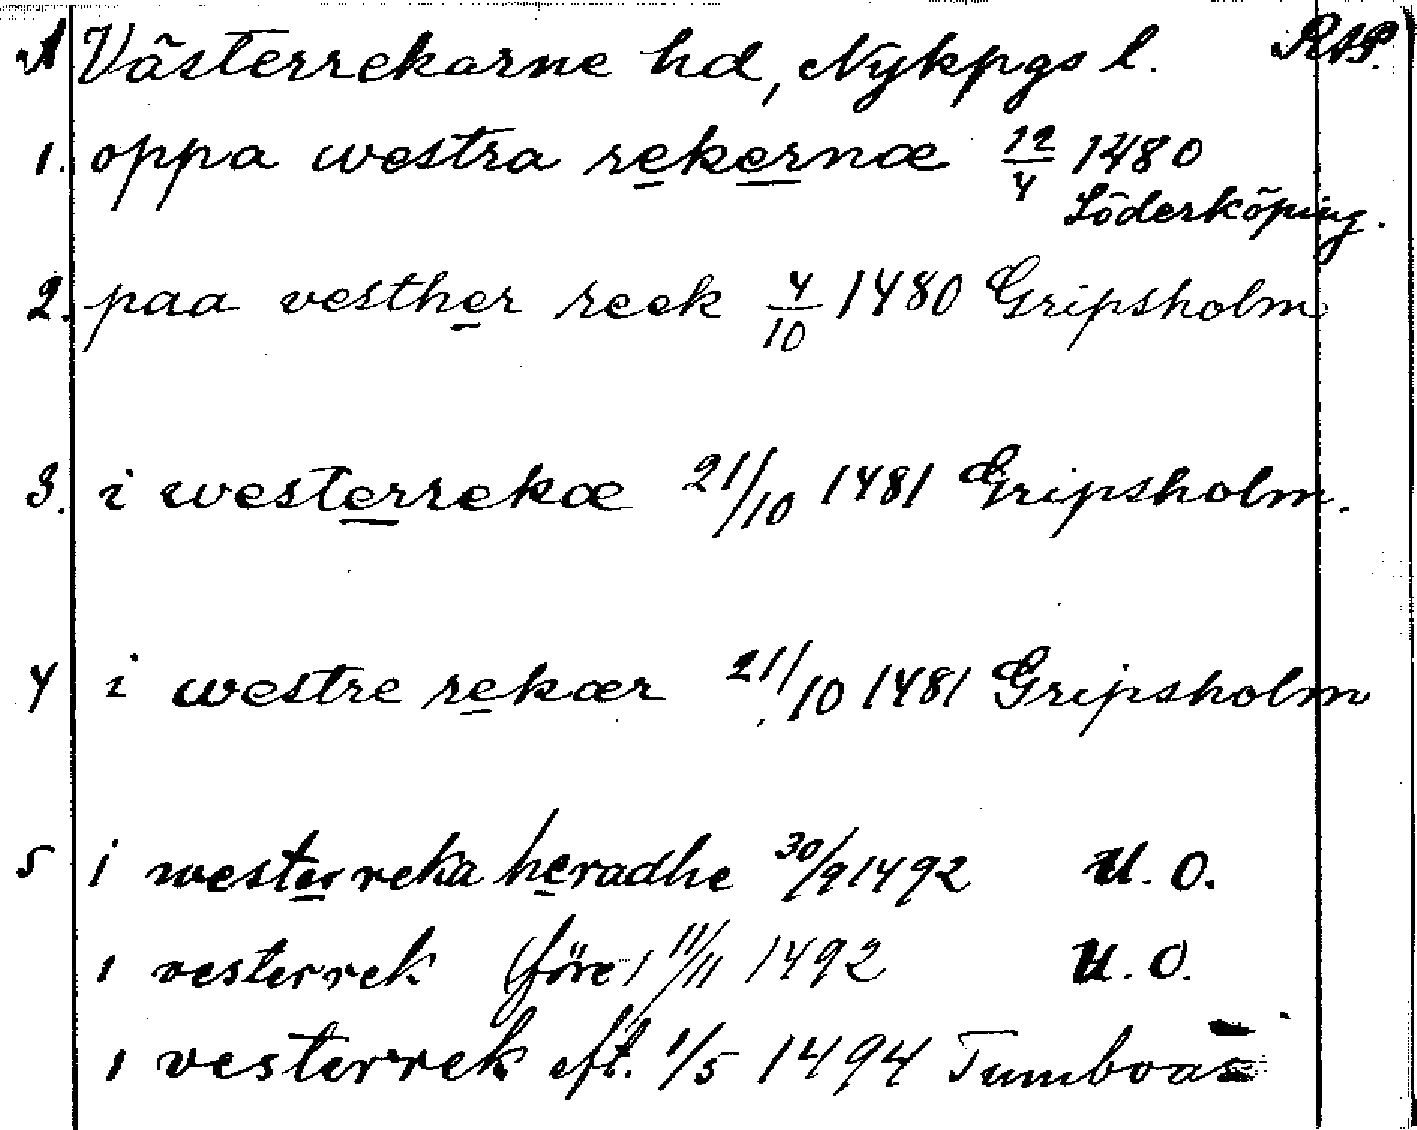 A Västerrekarne hd, Nykpgs l. RAP.
1. oppa westra rekernæ 12/4 1480
Söderköping.
2. paa vesther reek 4/10 1480 Gripsholm
3. i westerrekæ 21/10 1481 Gripsholm.
4 i westre rekær 21/10 1481 Gripsholm
5 i westerreka heradhe 30/9 1492 U. O.
i vesterrek (före) 11/11 1492 U. O.
i vesterrek eft. 1/5 1494